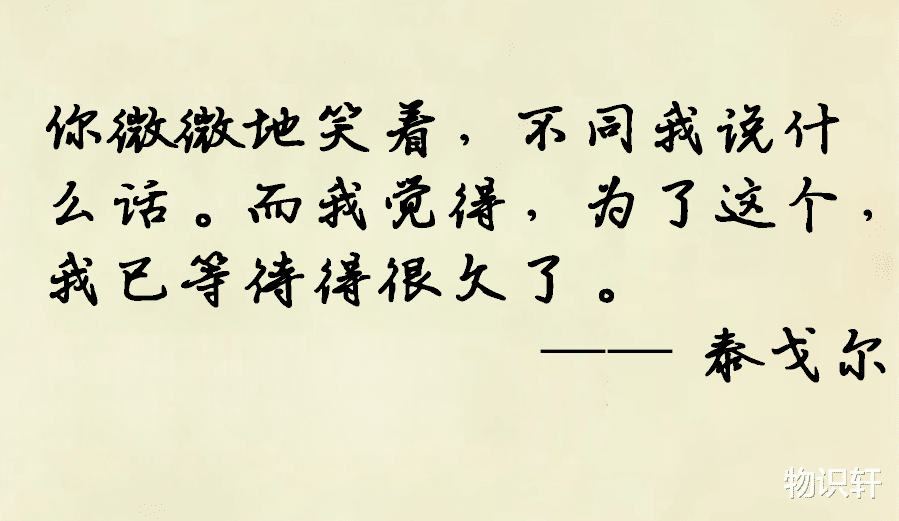 你微微地笑着，不同我说什
么话。而我觉得，为了这个，
我已等待得很久了。
—— 泰戈尔
物识轩